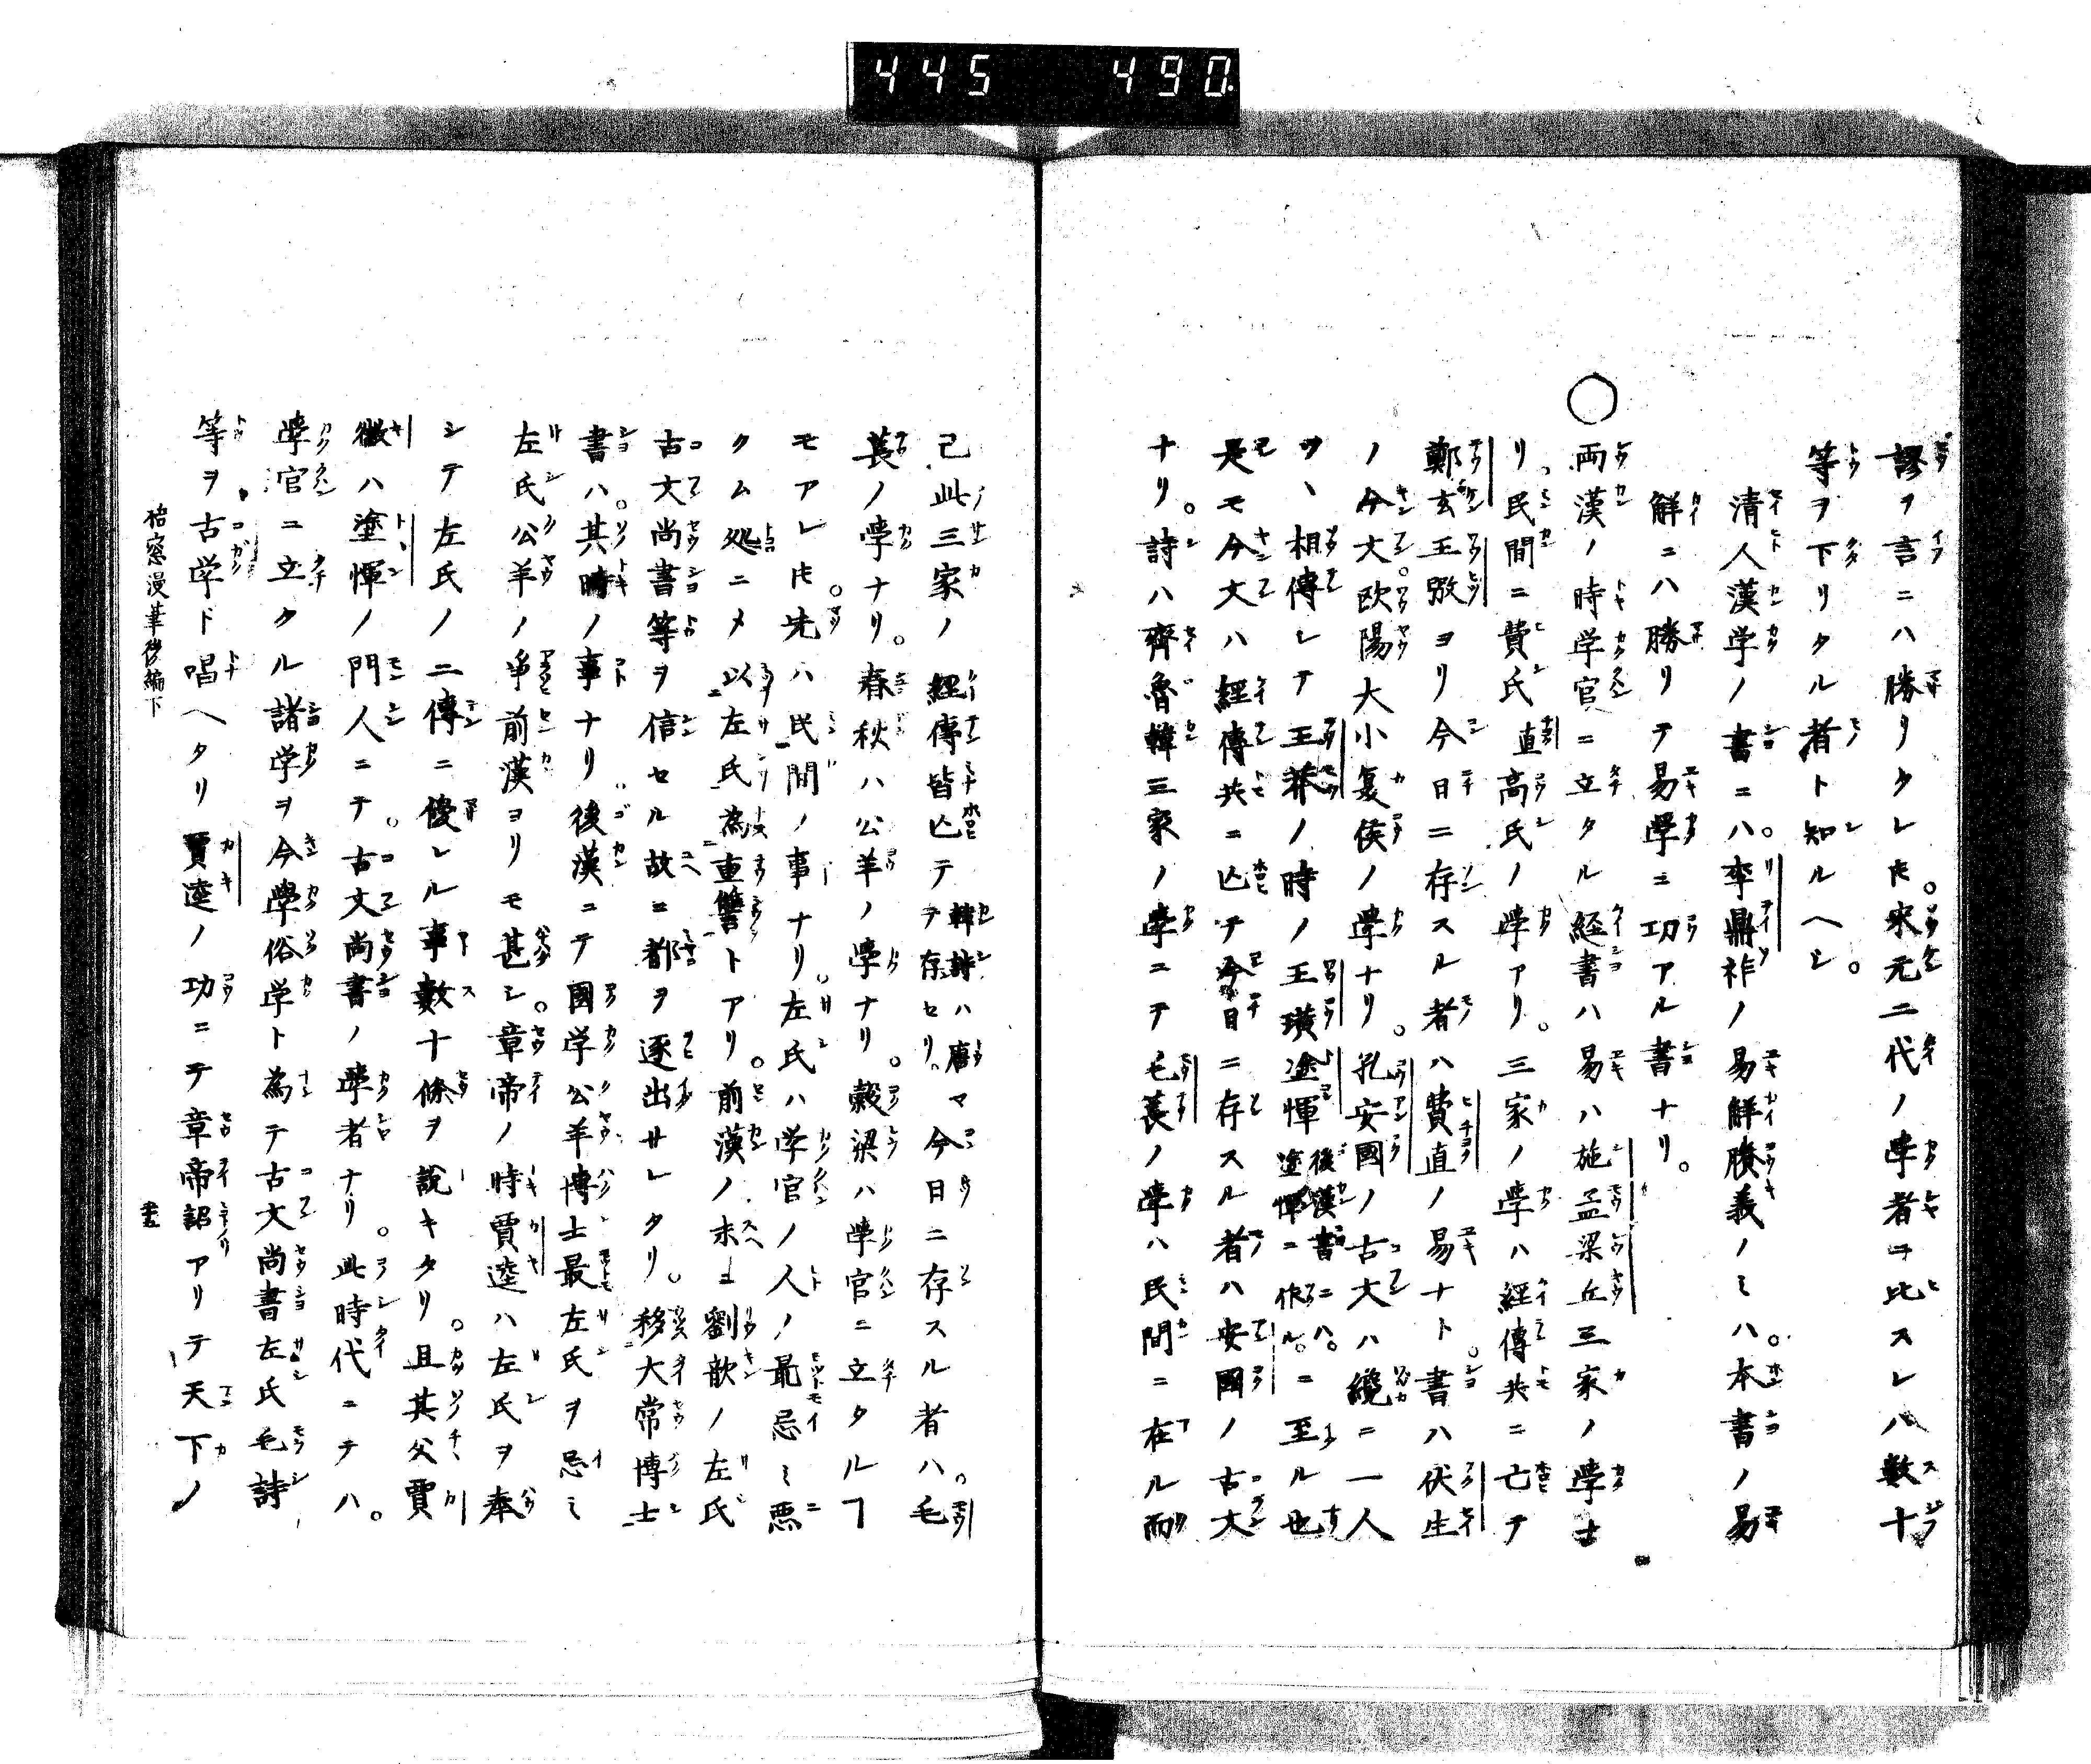 445 490
謬ヲ言ニハ勝リタレ𪜈。宋元二代ノ學者ヲ比スレハ數十
等ヲ下リタル者ト知ルヘシ。
清人漢学ノ書ニハ。李鼎祚ノ易解賸義ノミハ。本書ノ易
解ニハ勝リテ易學ニ功アル書ナリ。
〇両漢ノ時学官ニ立タル経書ハ易ハ施孟梁丘三家ノ學ナ
リ。民間ニ費氏直高氏ノ学アリ。三家ノ学ハ経傳共ニ亡テ
鄭玄王弼ヨリ今日ニ存スル者ハ費直ノ易ナト。書ハ伏生
ノ今文。欧陽大小夏侯ノ學ナリ。孔安國ノ古文ハ纔ニ一人
ツヽ相傳シテ王莽ノ時ノ王璜塗惲後漢書ニハ。塗惲ニ作ル。ニ至ル也
是モ今文ハ經傳共ニ亾テ今日ニ存スル者ハ安國ノ古文
ナリ。詩ハ齊魯韓三家ノ學ニテ毛萇ノ學ハ民間ニ在ル而
己此三家ノ經傳皆亾テ韓詩ハ唐マテ存セリ。今日ニ存スル者ハ。毛
萇ノ學ナリ。春秋ハ公羊ノ學ナリ。穀梁ハ學官ニ立タルヿ
モアレ𪜈。先ハ民間ノ事ナリ。左氏ハ学官ノ人ノ最忌ミ悪
クム処ニメ以左氏為重讐トアリ。前漢ノ末ニ劉歆ノ左氏
古文尚書等ヲ信セル故ニ都ヲ逐出サレタリ。移大常博士
書ハ。其時ノ事ナリ。後漢ニテ國学公羊博士最左氏ヲ忌ミ
左氏公羊ノ爭前漢ヨリモ甚シ。章帝ノ時賈逵ハ左氏ヲ奉
シテ左氏ノ二傳ニ優レル事數十條ヲ說キタリ。且其父賈
徽ハ塗惲ノ門人ニテ。古文尚書ノ學者ナリ。此時代ニテハ。
學官ニ立タル諸学ヲ今學俗学ト為テ古文尚書左氏毛詩
等ヲ古学ト唱ヘタリ賈逵ノ功ニテ章帝詔アリテ天下ノ
漫筆後編下